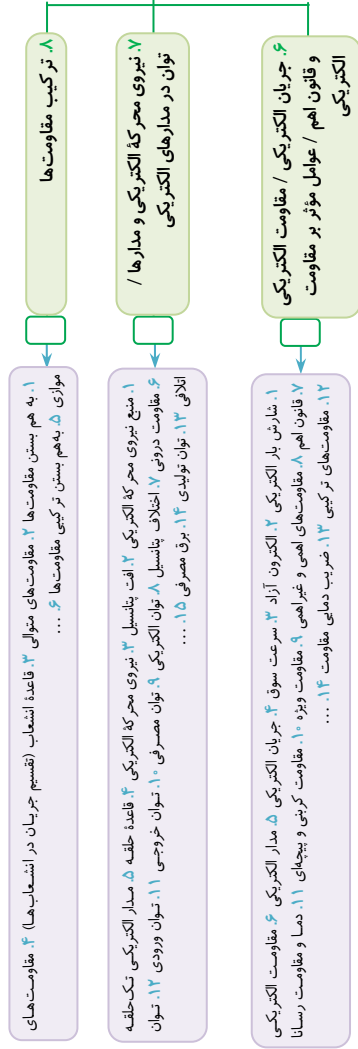 ۶. جریان الکتریکی / مقاومت الکتریکی
و قانون اهم / عوامل مؤثر بر مقاومت
الکتریکی
۱. شارش بار الکتریکی ۲. الکترون آزاد ۳. سرعت سوق ۴. جریان الکتریکی ۵. مدار الکتریکی ۶. مقاومت الکتریکی
۷. قانون اهم ۸. مقاومت‌های اهمی و غیراهمی ۹. مقاومت ویژه ۱۰. مقاومت کربنی و پیچه‌ای ۱۱. دما و مقاومت رسانا
۱۲. مقاومت‌های ترکیبی ۱۳. ضریب دمایی مقاومت ۱۴. ...
۷. نیروی محرکهٔ الکتریکی و مدارها /
توان در مدارهای الکتریکی
۱. منبع نیروی محرکهٔ الکتریکی ۲. افت پتانسیل ۳. نیروی محرکهٔ الکتریکی ۴. قاعدهٔ حلقه ۵. مدار الکتریکی تک‌حلقه
۶. مقاومت درونی ۷. اختلاف پتانسیل ۸. توان الکتریکی ۹. توان مصرفی ۱۰. توان خروجی ۱۱. توان ورودی ۱۲. توان
اتلافی ۱۳. توان تولیدی ۱۴. برق مصرفی ۱۵. ...
۸. ترکیب مقاومت‌ها
۱. به هم بستن مقاومت‌ها ۲. مقاومت‌های متوالی ۳. قاعدهٔ انشعاب (تقسیم جریان در انشعاب‌ها) ۴. مقاومت‌های
موازی ۵. به‌هم بستن ترکیبی مقاومت‌ها ۶. ...